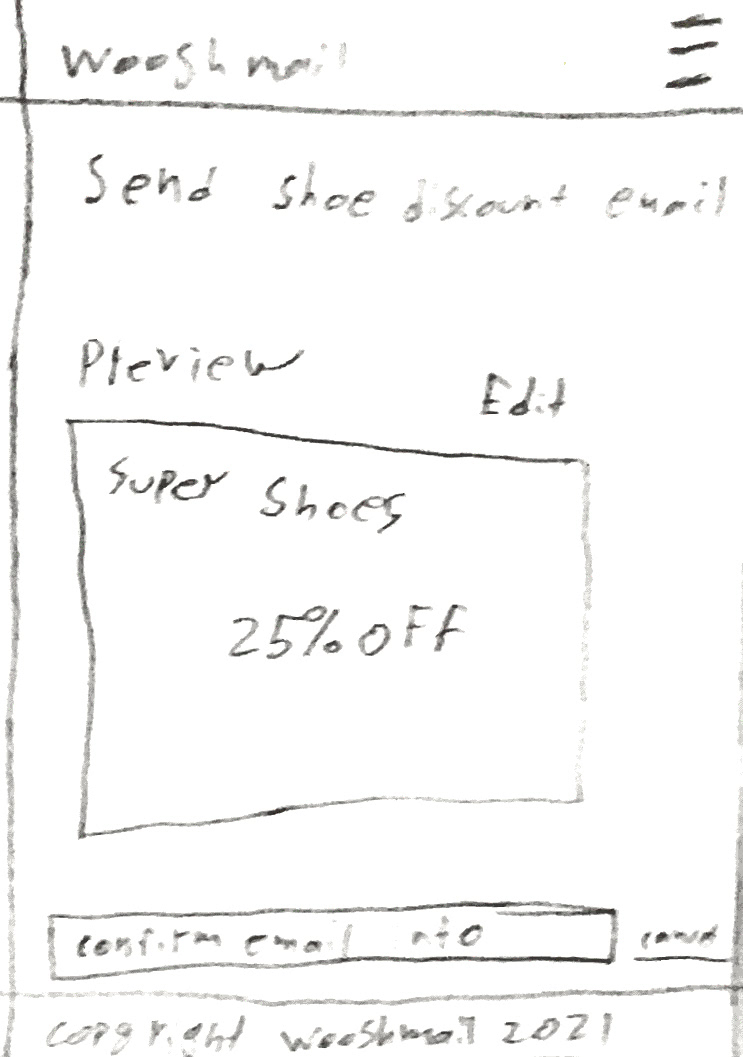 Wooshmail
Send shoe discount email
Preview
Edit
Super Shoes
25% OFF
confirm email info
cancel
copyright wooshmail 2021